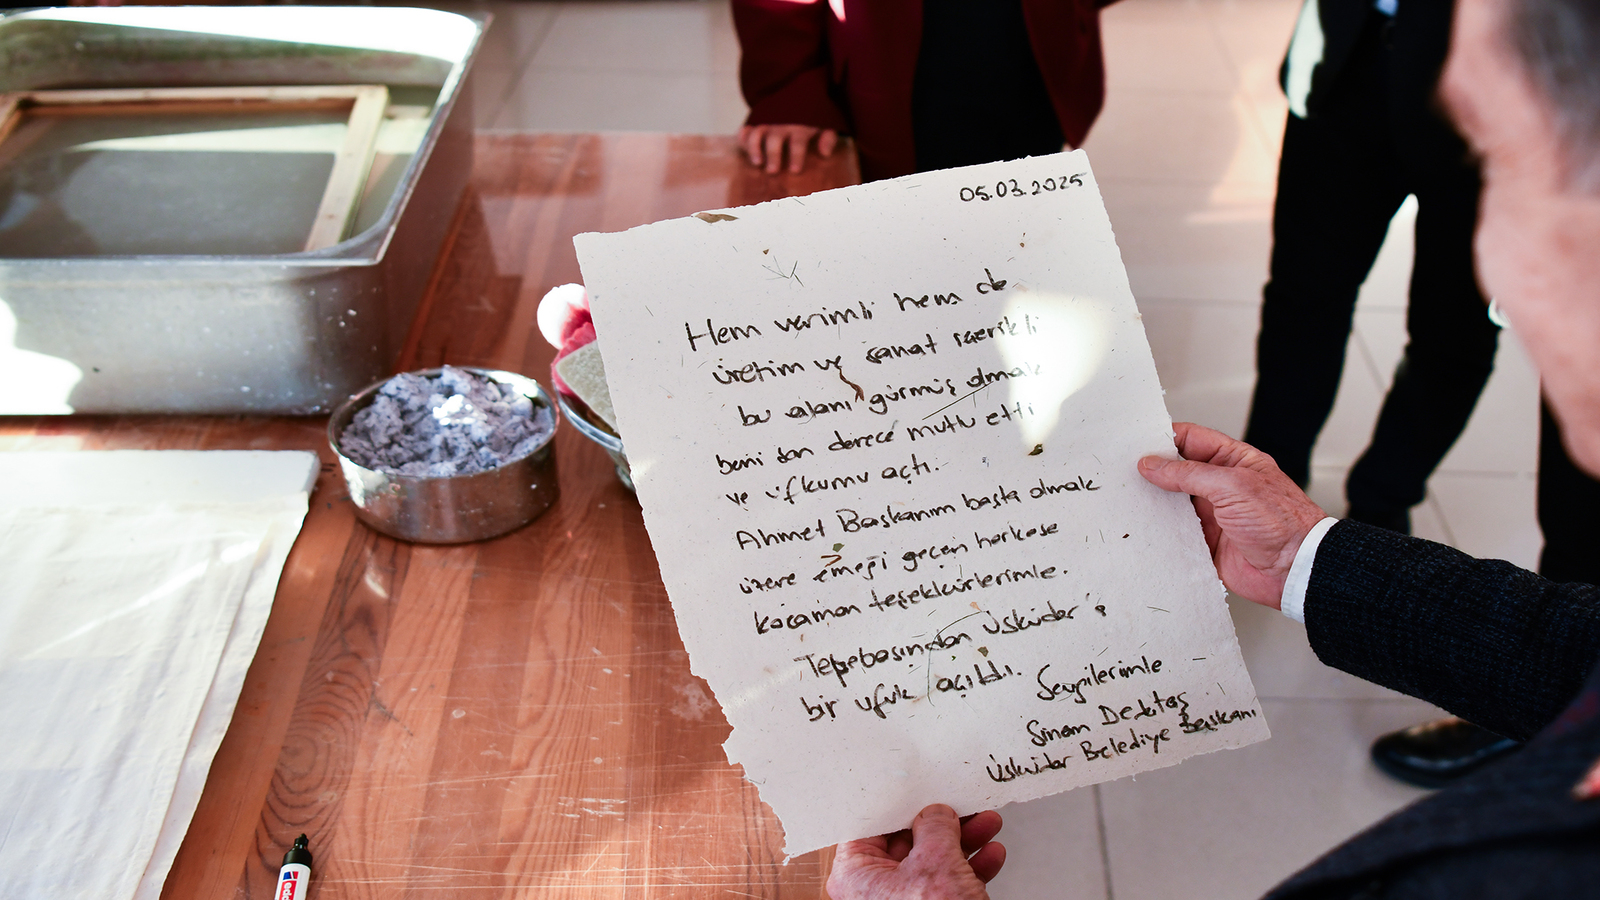 05.03.2025
Hem verimli hem de
üretim ve sanat içerikli
bu alanı görmüş olmak
beni son derece mutlu etti
ve ufkumu açtı.
Ahmet Başkanım başta olmak
üzere emeği geçen herkese
kocaman teşekkürlerimle.
Tepebaşından Üsküdar'a
bir ufuk açıldı.
Sevgilerimle
Sinem Dedetaş
Üsküdar Belediye Başkanı